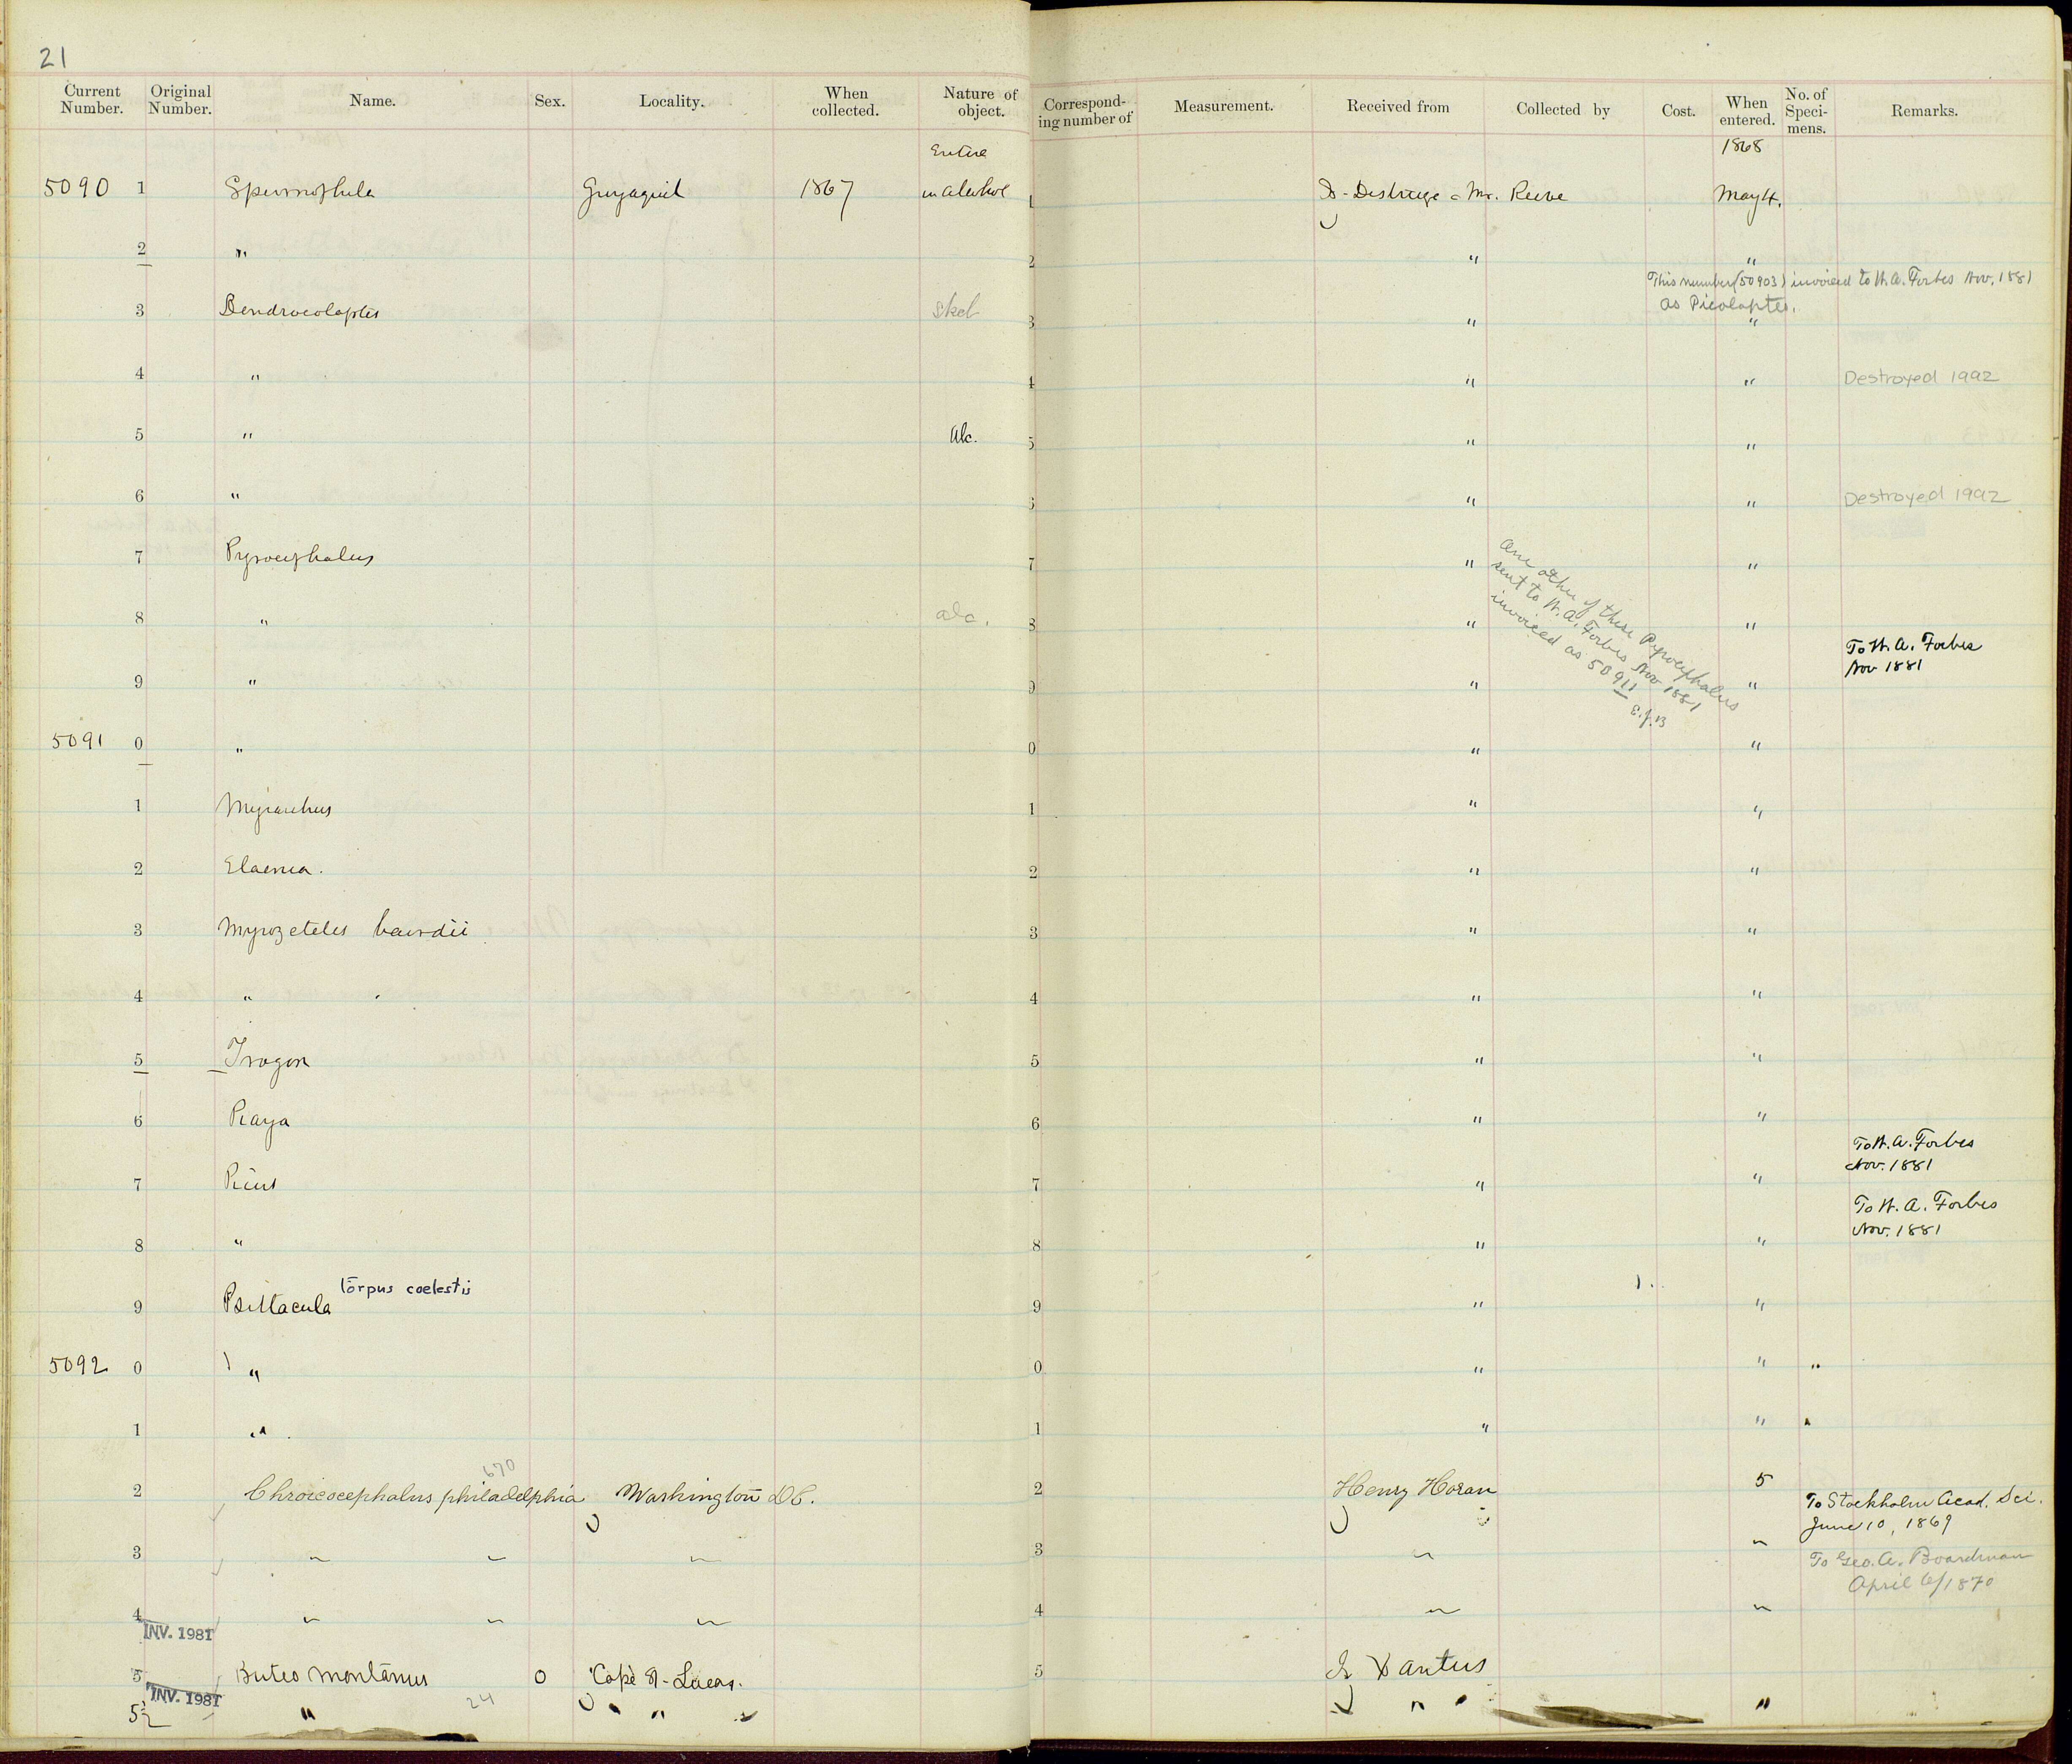 21
Current Number. Original Number. Name. Sex. Locality. When collected. Nature of object. Correspond- ing number of Measurement. Received from Collected by Cost. When entered. No. of Speci- mens. Remarks.
Entire 1868
5090 1 Spermophila Guyaquil 1867 in alcohol 1 Destruge Mr. Reeve May 4.
2 " 2 " "
This number (50903) invoiced to W. A. Forbes Nov. 1881
as Picolaptes.
3 Dendrocolaptes Skel 3 " "
4 " 4 " " Destroyed 1992
5 " Alc. 5 " "
6 " 6 " " Destroyed 1992
7 Pyrocephalus 7 " "
One other of these Pyrocephalus
sent to W. A. Forbes Nov 1881
invoiced as 50911
E.J.B
8 " alc. 8 " "
To W. A. Forbes
Nov 1881
9 " 9 " "
5091 0 " 0 " "
1 Myiarchus 1 " "
2 Elaenea. 2 " "
3 Myiozetetes bairdii 3 " "
4 " " 4 " "
5 Trogon 5 " "
6 Piaya 6 " "
To W. A. Forbes
Nov. 1881
7 Picus 7 " "
To W. A. Forbes
Nov. 1881
8 " 8 " "
Forpus coelestis
9 Psittacula 9 " "
5092 0 " 0 " "
1 " 1 " "
670
2 Chroicocephalus philadelphia Washington DC. 2 Henry Horan 5
To Stockholm Acad. Sci.
June 10, 1869
3 " " " 3 " "
To Geo. A. Boardman
April 6/1870
4 " " " 4 " "
INV. 1981
5 Buteo montanus O Cape St. Lucas. 5 J. Xantus
INV. 1981
24
5½ " " " " "